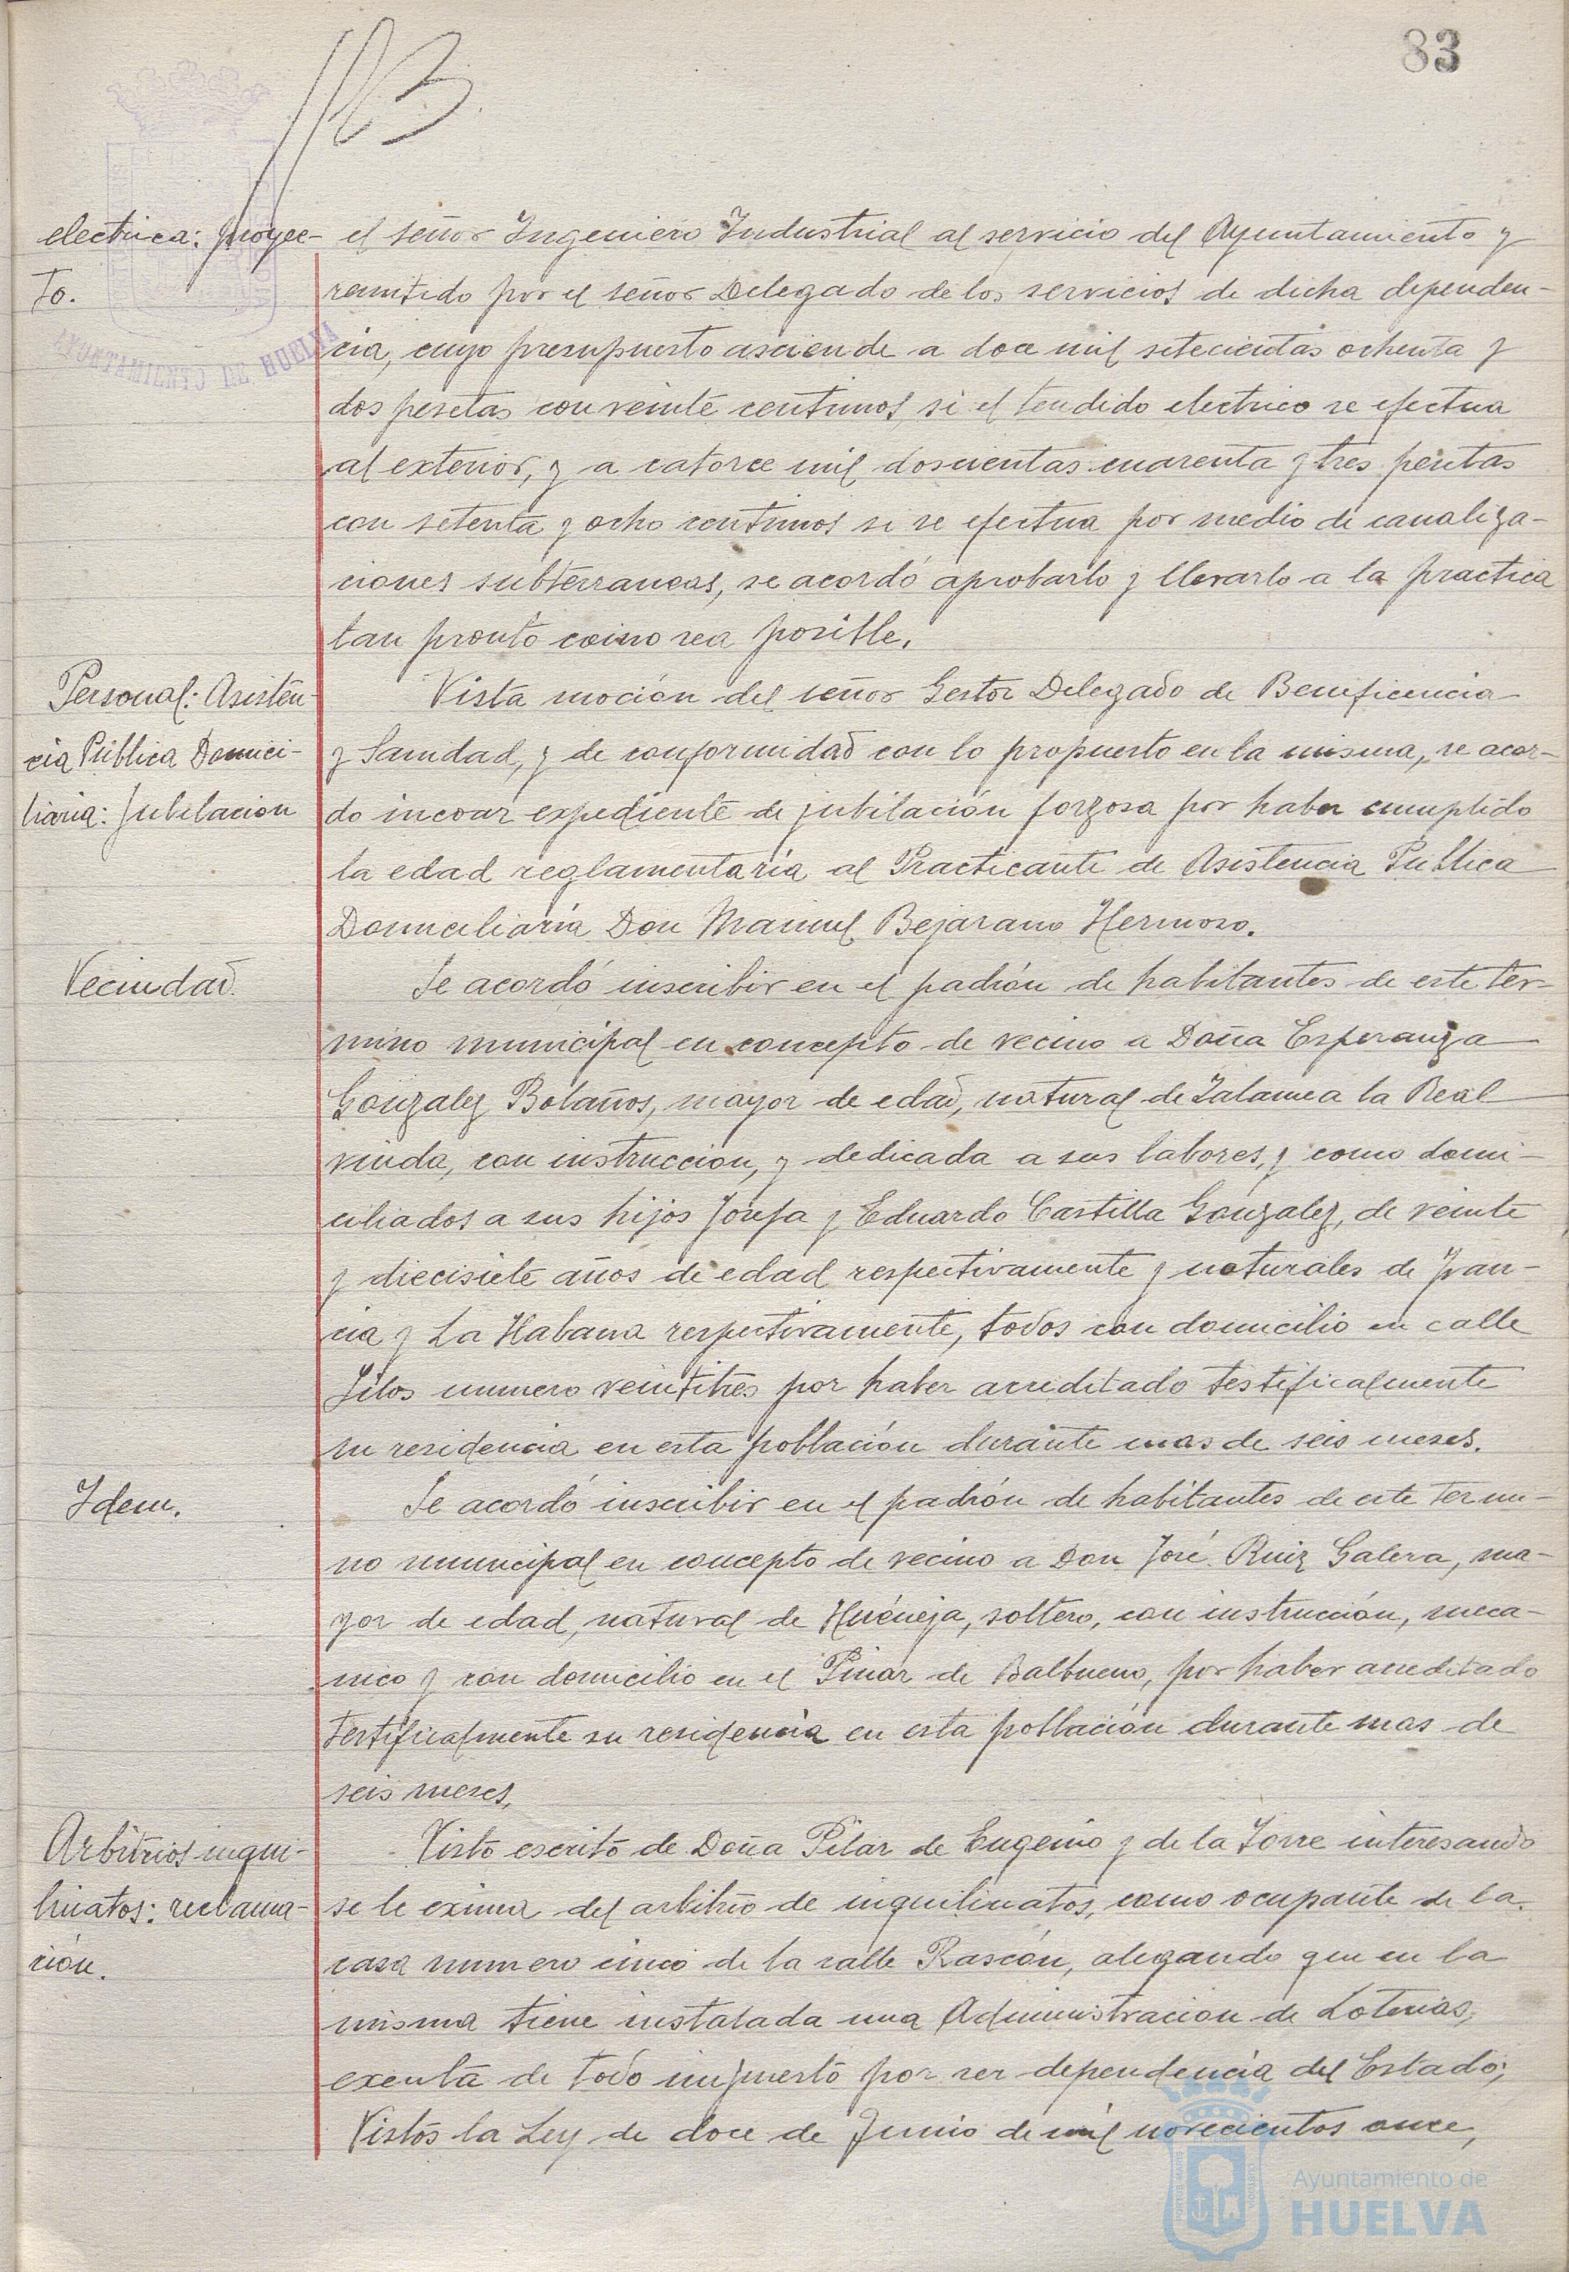 83
183
AYUNTAMIENTO DE HUELVA
electrica: proyec-
to.
el señor Ingeniero Industrial al servicio del Ayuntamiento y
remitido por el señor Delegado de los servicios de dicha dependen-
cia, cuyo presupuesto asciende a doce mil setecientas ochenta y
dos pesetas con veinte centimos, si el tendido electrico se efectua
al exterior, y a catorce mil doscientas cuarenta y tres pesetas
con setenta y ocho centimos si se efectua por medio de canaliza-
ciones subterraneas, se acordó aprobarlo y llevarlo a la practica
tan pronto como sea posible.
Personal: Asisten-
cia Publica Domici-
liaria: Jubilacion
Vista moción del señor Gestor Delegado de Beneficencia
y Sanidad, y de conformidad con lo propuesto en la misma, se acor-
do incoar expediente de jubilación forzosa por haber cumplido
la edad reglamentaria al Practicante de Asistencia Publica
Domiciliaria Don Manuel Bejarano Hermoso.
Vecindad.
Se acordó inscribir en el padrón de habitantes de este ter-
mino municipal en concepto de vecino a Doña Esperanza
Gonzalez Bolaños, mayor de edad, natural de Zalamea la Real
viuda, con instruccion, y dedicada a sus labores, y como domi-
ciliados a sus hijos Josefa y Eduardo Castilla Gonzalez, de veinte
y diecisiete años de edad respectivamente y naturales de Fran-
cia y La Habana respectivamente, todos con domicilio en calle
Silos numero veintitres por haber acreditado testificalmente
su residencia en esta población durante mas de seis meses.
Idem.
Se acordó inscribir en el padrón de habitantes de este termi-
no municipal en concepto de vecino a Don José Ruiz Galera, ma-
yor de edad, natural de Huéneja, soltero, con instrucción, meca-
nico y con domicilio en el Pinar de Balbueno, por haber acreditado
testificalmente su residencia en esta población durante mas de
seis meses.
Arbitrios inqui-
linatos: reclama-
ción.
Visto escrito de Doña Pilar de Eugenio y de la Torre interesando
se le exima del arbitrio de inquilinatos, como ocupante de la
casa numero cinco de la calle Rascón, alegando que en la
misma tiene instalada una Administracion de Loterias,
exenta de todo impuesto por ser dependencia del Estado;
Vistos la Ley de doce de Junio de mil novecientos once,
Ayuntamiento de
HUELVA